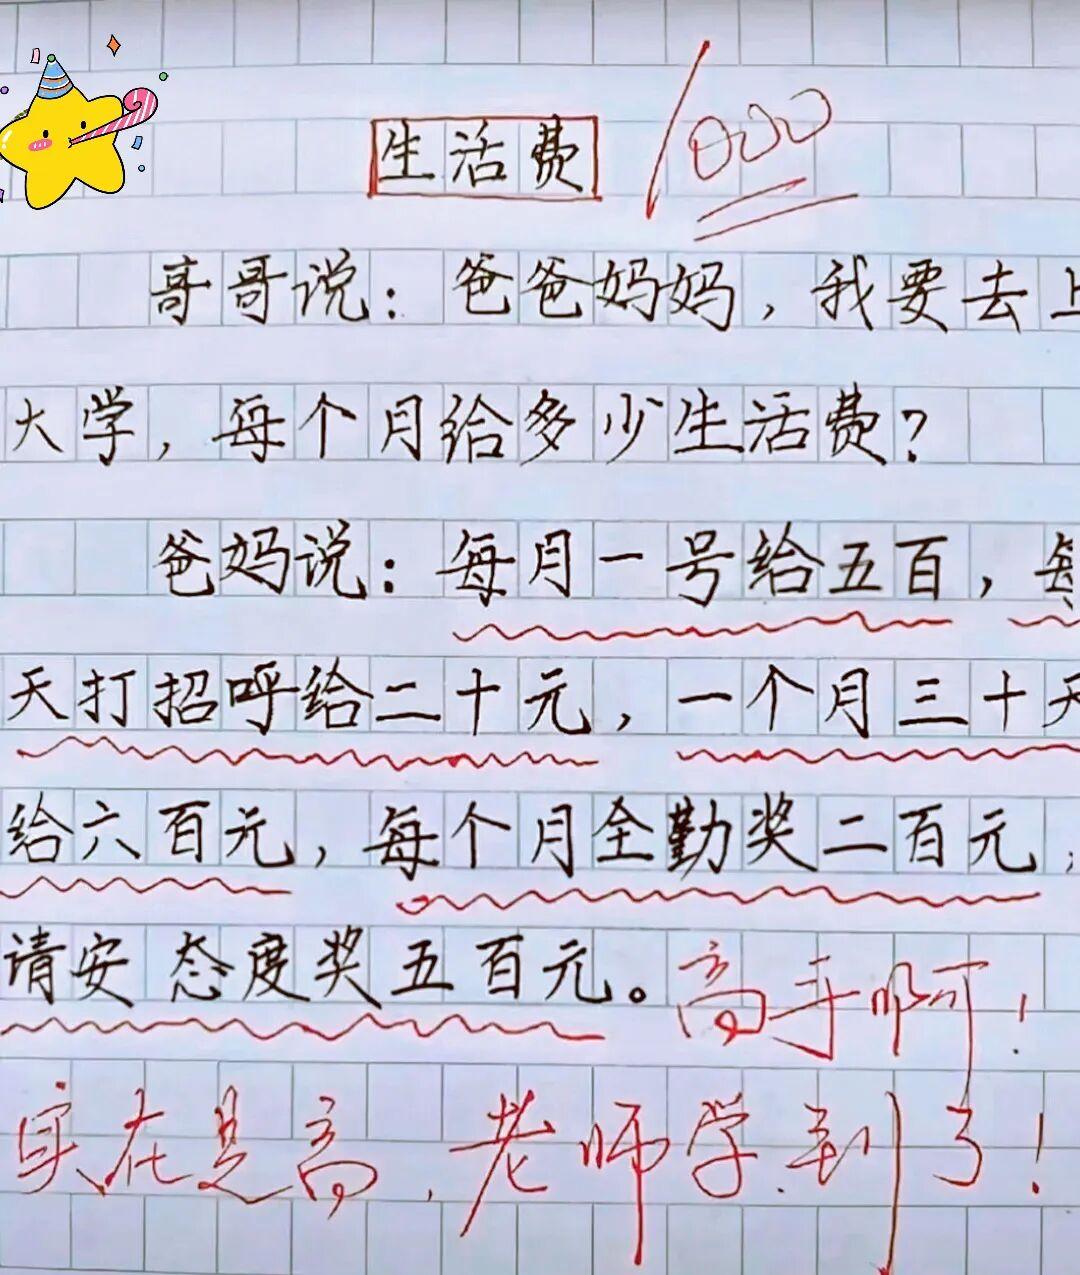 生活费 1000
哥哥说：爸爸妈妈，我要去上
大学，每个月给多少生活费？
爸妈说：每月一号给五百，每
天打招呼给二十元，一个月三十天
给六百元，每个月全勤奖二百元，
请安态度奖五百元。高手啊！
实在是高，老师学到了！